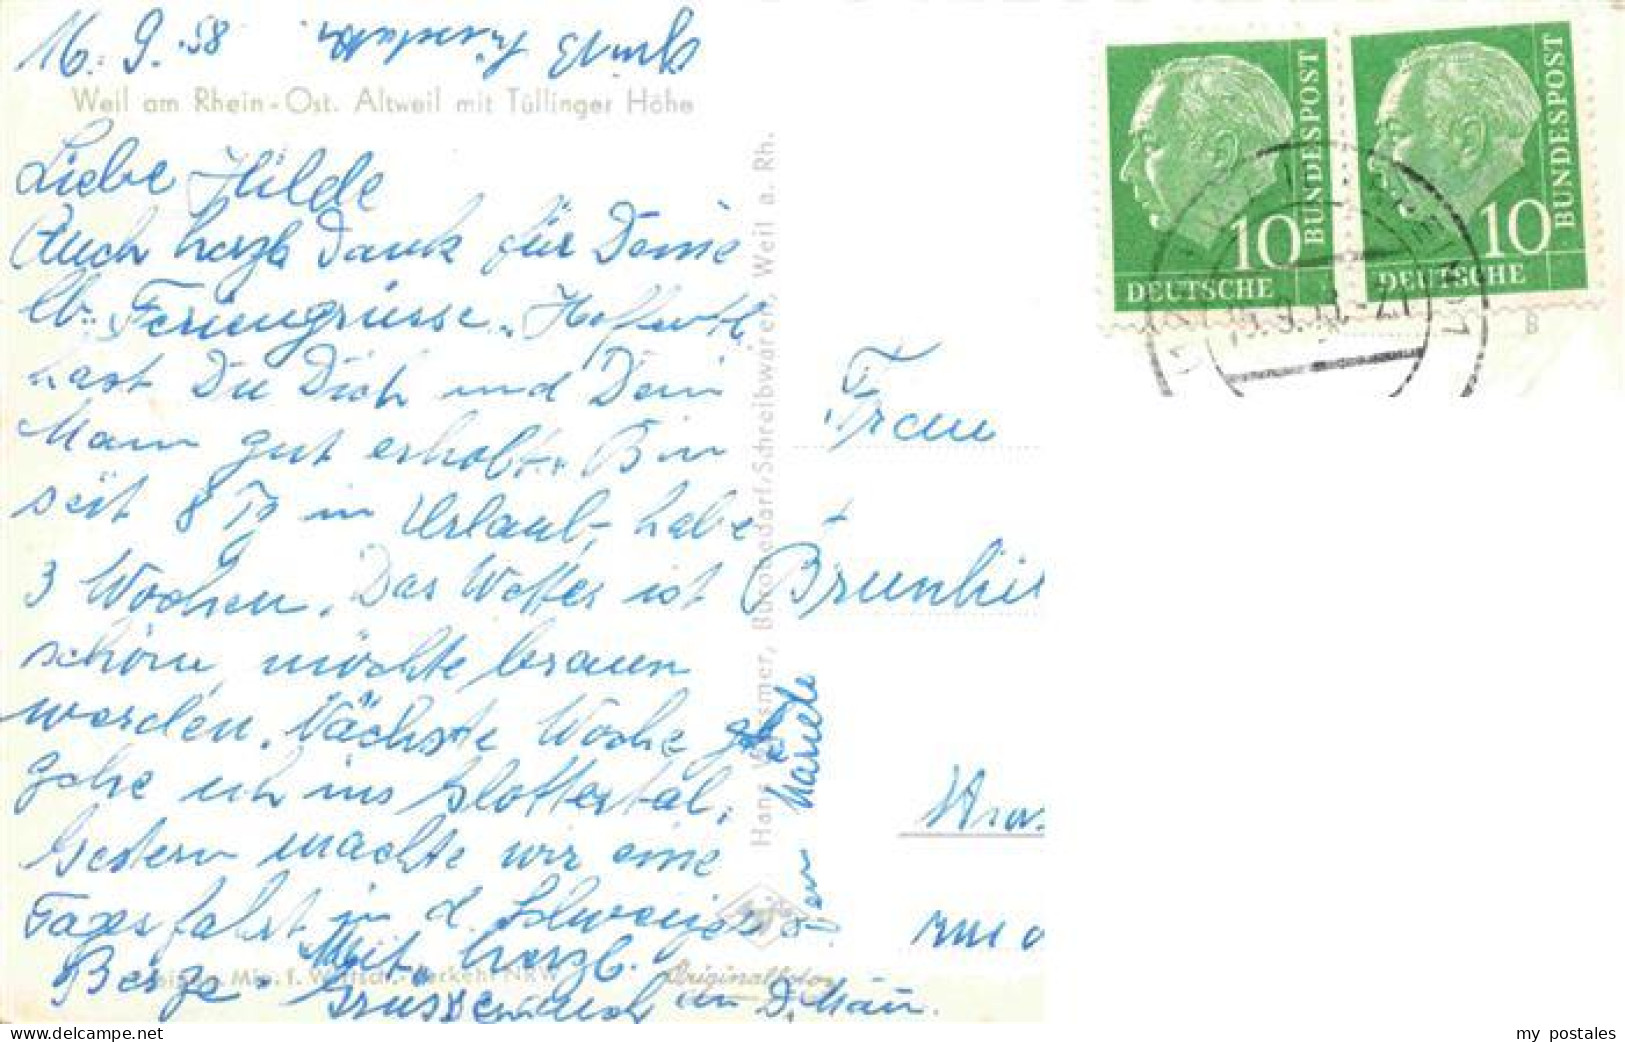 16. 9. 58
Weil am Rhein-Ost. Altweil mit Tüllinger Höhe
Liebe Hilde
Auch herzl Dank für Deine
lb. Feriengrüsse. Hoffentl.
hast Du Dich und Dein
Mann gut erholt. Bin
seit 8 Tg in Urlaub, habe
3 Wochen. Das Wetter ist
schön, möchte braun
werden. Nächste Woche
gehe ich ins Glottertal,
Gestern machte wir eine
Tagesfahrt in d. Schweizer
Berge. Mit herzl.
Grüssen auch an D. Mann.
Hans Wissmer, Bürobedarf/Schreibwaren, Weil a. Rh.
Originalfoto
Frau
Brunhil
BUNDESPOST
10
DEUTSCHE
BUNDESPOST
10
DEUTSCHE
B
my postales